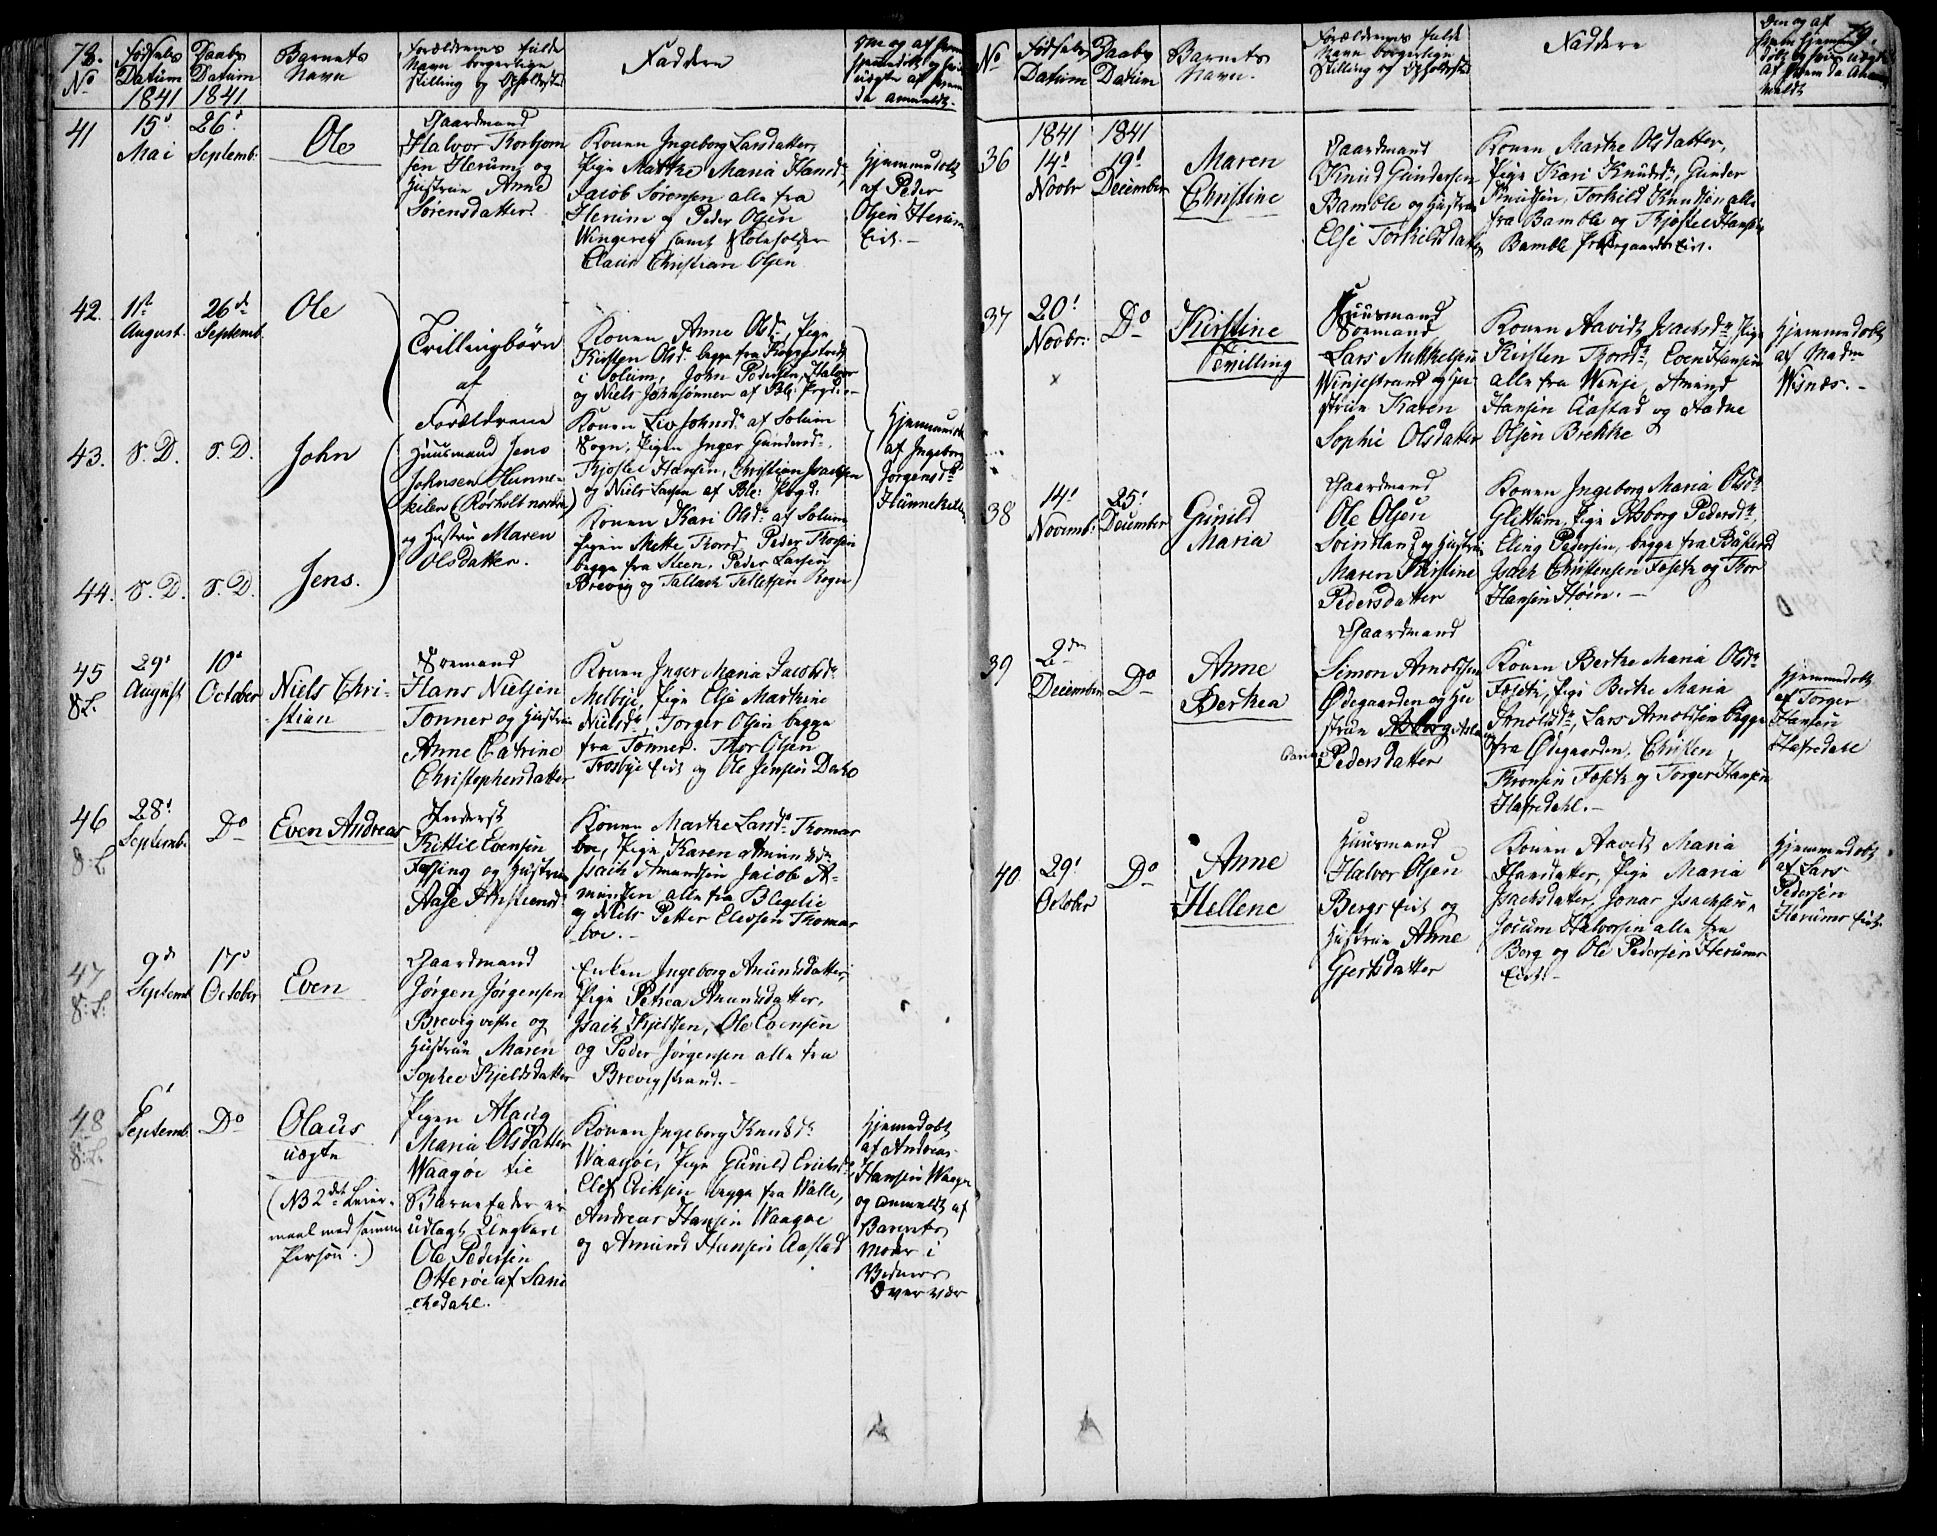 78.
No
Fødsels
Datum
1841
Daabs
Datum
1841
Barnets
Navn
Forældrenes fulde
Navn borgerlige
Stilling og Opholdsted
Faddere
41
15de
Mai
26de
Septemb:
Ole
Gaardmand
Halvor Thorbjørn
sen Herum og
Hustrue Anne
Sørensdatter
Konen Ingeborg Larsdatter,
Pige Marthe Maria Hansd:
Jacob Sørensen alle fra
Herum og Peder Olsen
Wingereg samt Skoleholder
Claus Christian Olsen
Hjemmedøbt
af Peder
Olsen Herum
Eiet.
42.
1ste
August.
26de
Septemb.
Ole
Trillingbørn
af
Forældrene
Huusmand Jens
Johnsen Hunne-
kilen (Rørholt nordre)
og Hustru Maren
Olsdatter.
Konen Anne Olsdr, Pige
Kirsten Olsdr begge fra
i Solum, John Pedersen, Halvor
og Niels Johnsønner af Ble: Prgd:
43.
S. D.
S. D.
John
Konen Liv Johnsdr af Solum
Sogn, Pigen Inger Gundersdr,
Kjøstel Hansen, Christian Isacksen
og Niels Larsen af Ble: Prgd:
44.
S. D.
S. D.
Jens.
Konen Kari Olsdr af Solum
Pigen Mette Thorsd. Peder Thorsen
begge fra Steen, Peder Larsen
Brevig og Tallack Tellefsen Rogn
Hjemmedøbt
af Ingeborg
Jørgensdr
Hunnekilen
45
S.L.
29de
August
10de
October
Niels Chri-
stian
Søemand
Hans Nielsen
Tønner og Hustrue
Anne Catrine
Christophersdatter
Konen Inger Maria Jacobsdr
Melbye, Pige Else Marthine
Nielsdr, Jørger Olsen begge
fra Tønner. Thor Olsen
Trosbye Eiet og Ole Jensen Dobo
46
S.L
28de
Septemb.
Do
Even Andreas
Inderst
Kittil Evensen
Fossing og Hustrue
Aase Christensd
Konen Marthe Larsdr Thomas
boe, Pige Karen Amundsdr
Isach Amundsen Jacob A-
mundsen alle fra Blegelie
og Niels Petter Olessen Thomas
boe.
47
S.L.
9de
Septemb
17de
October
Even
Gaardmand
Jørgen Jørgensen
Brevig vestre og
Hustrue Maren
Sophee Kjeldsdatter
Enken Ingeborg Amundsdatter,
Pige Petrea Amundsdatter,
Isach Kjeldsen, Ole Evensen
og Peder Jørgensen alle fra
Brevigstrand.
48
S.L.
6te
Septemb.
Do
Olaus
uægte
(NB 2det Leier-
maal med samme
Person.)
Pigen Alaug
Maria Olsdatter
Waagøe til
Barnefader er
udlagt Ungkarl
Ole Pedersen
Otterøe af Sani
chedahl.
Konen Ingeborg Knudsdr
Waagøe, Pige Gunild Eriksdr
Elef Eriksen begge fra Walle,
Andreas Hansen Waagøe
og Amund Hansen Aastad
Hjemmedøbt
af Andreas
Hansen Waagøe
og anmeldt af
Barnets
Moder i
Vidners
Overvær
79.
No
Fødsels
Datum
Daabs
Datum
Barnets
Navn.
Forældrenes fulde
Navn borgerlige
Stilling og Opholdsted
Faddere
36
1841
14de
Novbr
1841
19de
December
Maren
Christine
Gaardmand
Knud Gundersen
Bamble og Hustrue
Else Torkildsdatter
Konen Marthe Olsdatter,
Pige Kari Knudsdr, Gunder
Knudsen, Torkild Knudsen alle
fra Bamble og Kjøstel Hansen
Bamble Præstegaards Eiet.
37
20de
Novbr:
x
Do
Kirstine
Tvilling
Huusmand
Søemand
Lars Mikkelsen
Winjestrand og Hu
strue Karen
Sophie Olsdatter
Konen Aavidt Isachsdr Pige
Kirsten Thorsdr, Even Hansen
alle fra Winje, Amund
Hansen Aastad og Aadne
Olsen Brekke
Hjemmedøbt
af Madm
Wisnæs.
38
14de
Novemb:
25de
December
Gunild
Maria
Gaardmand
Ole Olsen
Svindland og Hustrue
Maren Kirstine
Pedersdatter
Konen Ingeborg Maria Olsdr
Glittum, Pige Asborg Pedersdr,
Eling Pedersen, begge fra Baasland
Isach Christensen Foseth og Thor
Hansen Høen.
39
2den
December
Do
Anne
Berthea
Gaardmand
Simon Arnoldsen
Ødegaarden og Hu
strue
Pedersdatter
Konen Berthe Maria Olsdr
Foseth, Pige Berthe Maria
Arnoldsdr, Lars Arnoldsen begge
fra Ødegaarden. Christen
Thronsen Foseth og Torger Hansen
Hafredahl.
Hjemmedøbt
af Torger
Hansen
Hafredahl
40
29de
October
Do
Anne
Hellene
Huusmand
Halvor Olsen
Bergs Eiet og
Hustrue Anne
Gjertsdatter
Konen Aavidt Maria
Hansdatter, Pige Maria
Isachsdatter, Jonas Isachsen,
Jocum Halvorsen alle fra
Borg og Ole Pedersen Herums
Eiet.
Hjemmedøbt
af Lars
Pedersen
Herums Eiet